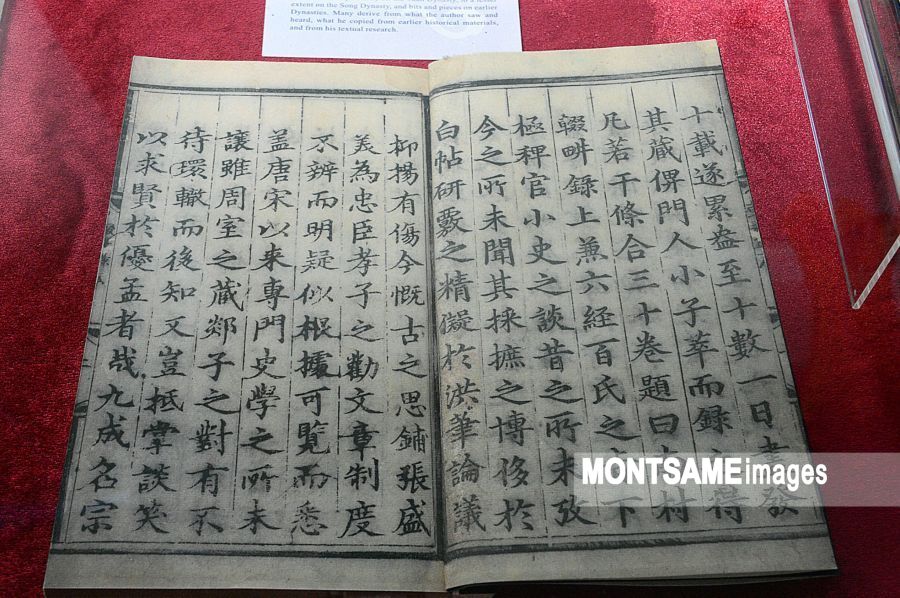 extent on the Song Dynasty, and bits and pieces on earlier
Dynasties. Many derive from what the author saw and
heard, what he copied from earlier historical materials,
and from his textual research.
十載遂累盎至十數一日發
其蔵俾門人小子萃而録得
凡若干條合三十卷題曰村
輟畊錄上兼六経百氏之下
極稗官小史之談昔之所未攷
今之所未聞其採摭之博侈於
白帖研覈之精儗於洪筆論議
抑揚有傷今慨古之思鋪張盛
美為忠臣孝子之勸文章制度
不辨而明疑似根據可覽而悉
盖唐宋以来專門史學之所未
讓雖周室之蔵郯子之對有不
待環轍而後知又豈抵掌談笑
以求賢於優孟者哉九成名宗
MONTSAMEimages